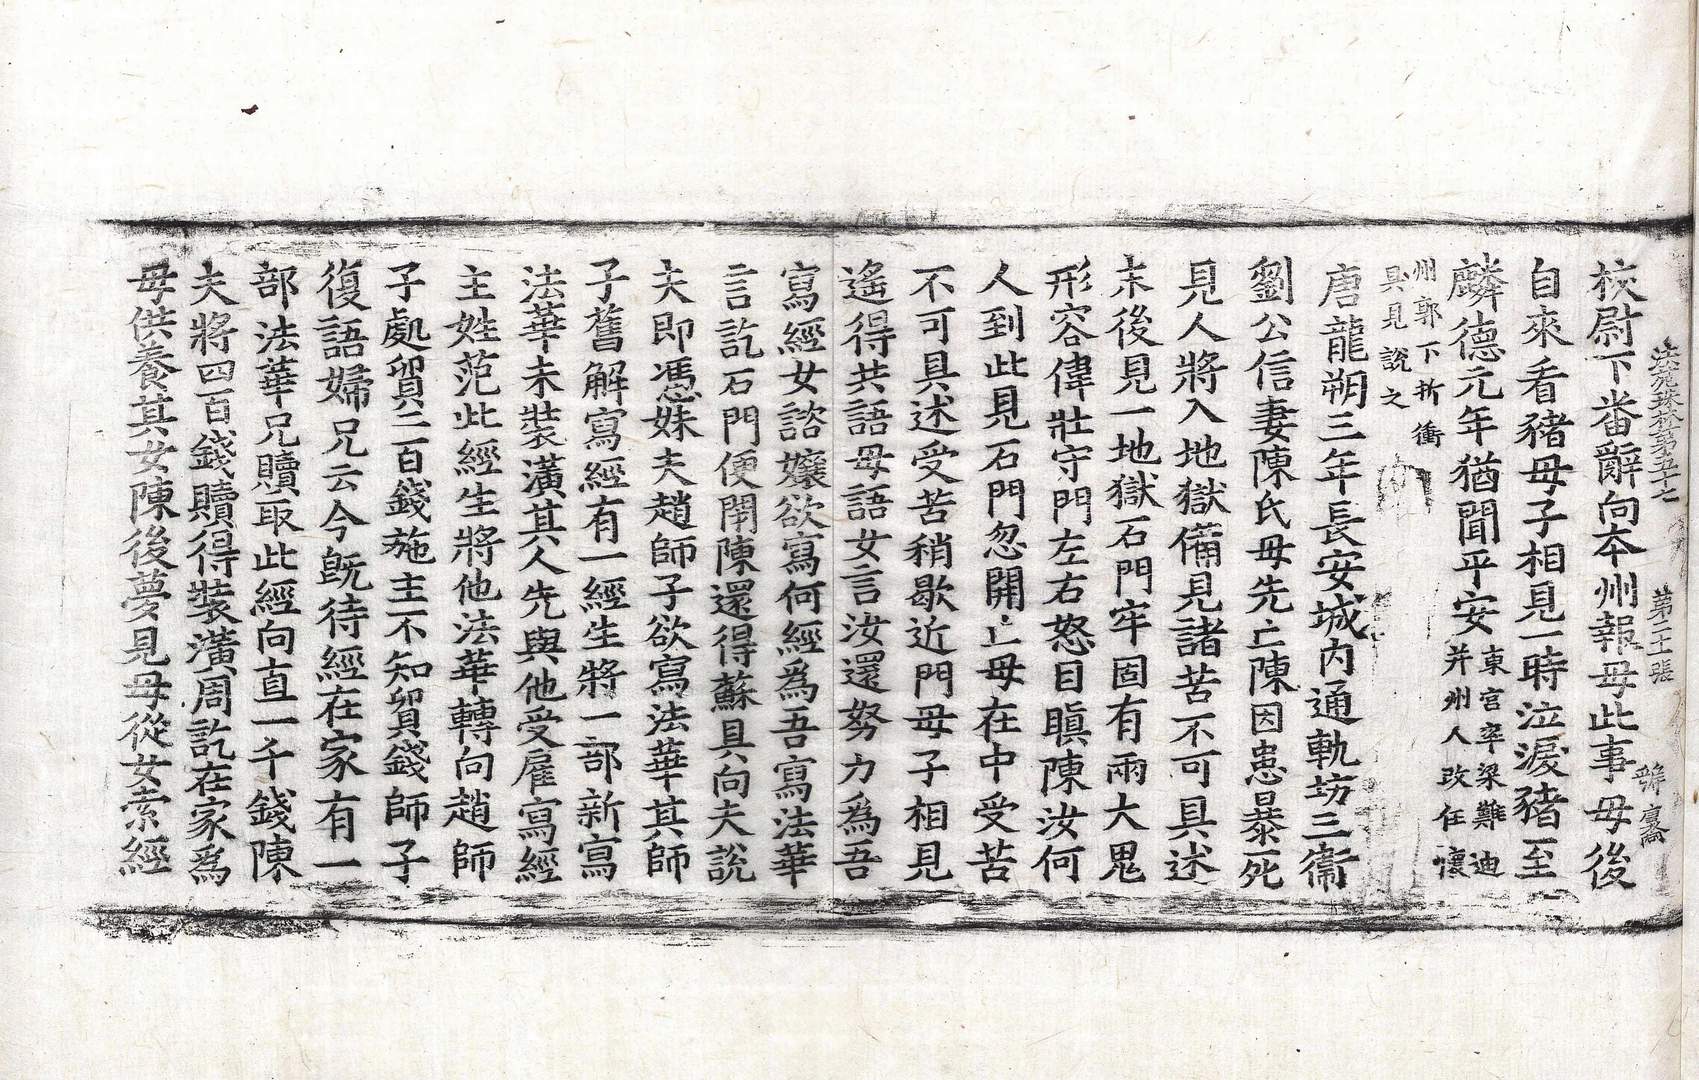 法苑珠林第五十七 第二十張
校尉下番辭向本州報母此事母後
自來看猪母子相見一時泣淚猪至
麟德元年猶聞平安東宮率梁難迪
并州人改任懷
州郭下折衝
具見說之
唐龍朔三年長安城內通軌坊三衞
劉公信妻陳氏母先亡陳因患暴死
見人將入地獄備見諸苦不可具述
末後見一地獄石門牢固有兩大鬼
形容偉壯守門左右怒目瞋陳汝何
人到此見石門忽開亡母在中受苦
不可具述受苦稍歇近門母子相見
遙得共語母語女言汝還努力爲吾
寫經女諮孃欲寫何經爲吾寫法華
言訖石門便閇陳還得蘇具向夫說
夫即憑妹夫趙師子欲寫法華其師
子舊解寫經有一經生將一部新寫
法華未裝潢其人先與他受雇寫經
主姓范此經生將他法華轉向趙師
子處貿二百錢施主不知貿錢師子
復語婦兄云今旣待經在家有一
部法華兄贖取此經向直一千錢陳
夫將四百錢贖得裝潢周訖在家爲
母供養其女陳後夢見母從女索經